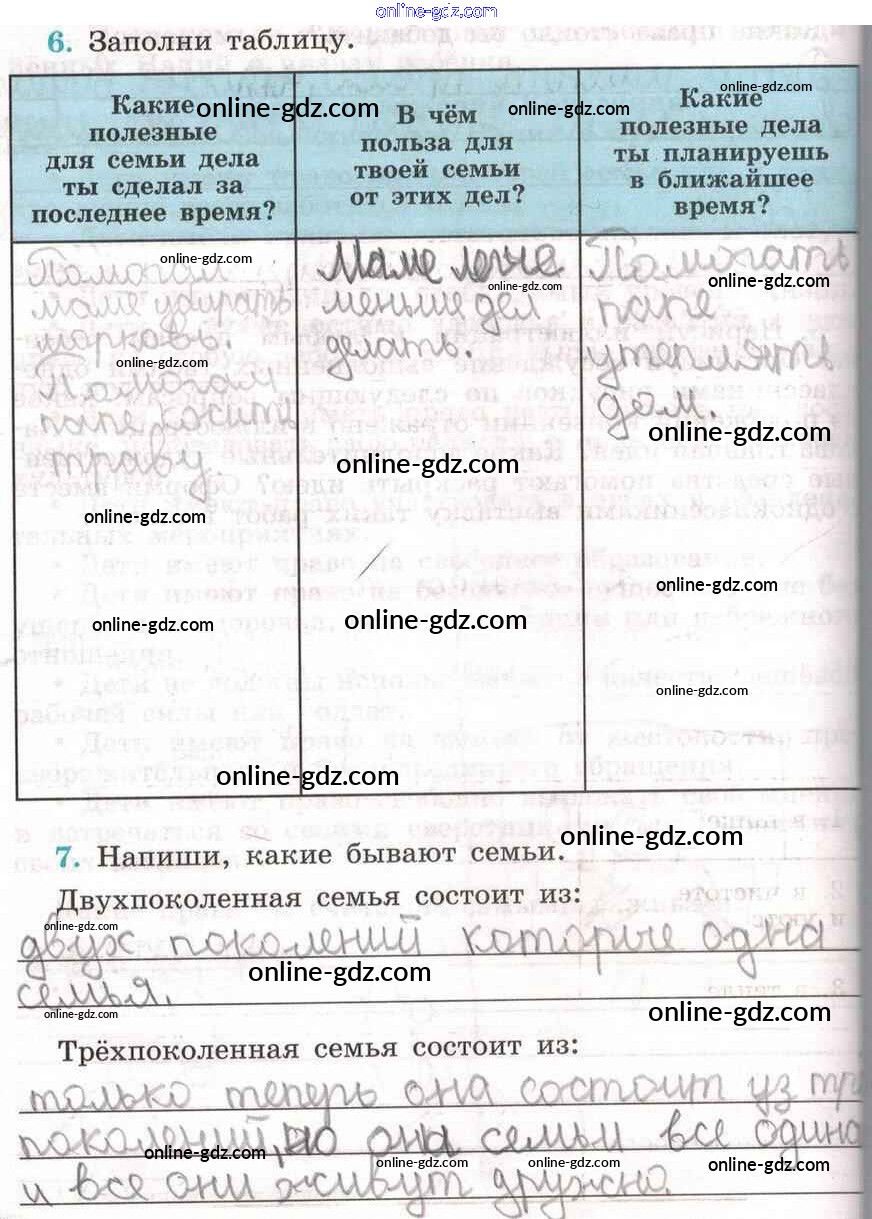 online-gdz.com
6. Заполни таблицу.
Какие
полезные
для семьи дела
ты сделал за
последнее время?
В чём
польза для
твоей семьи
от этих дел?
Какие
полезные дела
ты планируешь
в ближайшее
время?
online-gdz.com
online-gdz.com
online-gdz.com
Помогал
маме убирать
морковь.
Помогал
папе косить
траву.
Маме легче
меньше дел
делать.
Помогать
папе
утеплять
дом.
online-gdz.com
online-gdz.com
online-gdz.com
online-gdz.com
online-gdz.com
online-gdz.com
online-gdz.com
online-gdz.com
online-gdz.com
online-gdz.com
online-gdz.com
online-gdz.com
online-gdz.com
online-gdz.com
7. Напиши, какие бывают семьи.
Двухпоколенная семья состоит из:
двух поколений которые одна
семья.
online-gdz.com
online-gdz.com
online-gdz.com
online-gdz.com
Трёхпоколенная семья состоит из:
только теперь она состоит из
поколений, но она семьи все
и все они живут дружно.
online-gdz.com
online-gdz.com
online-gdz.com
online-gdz.com